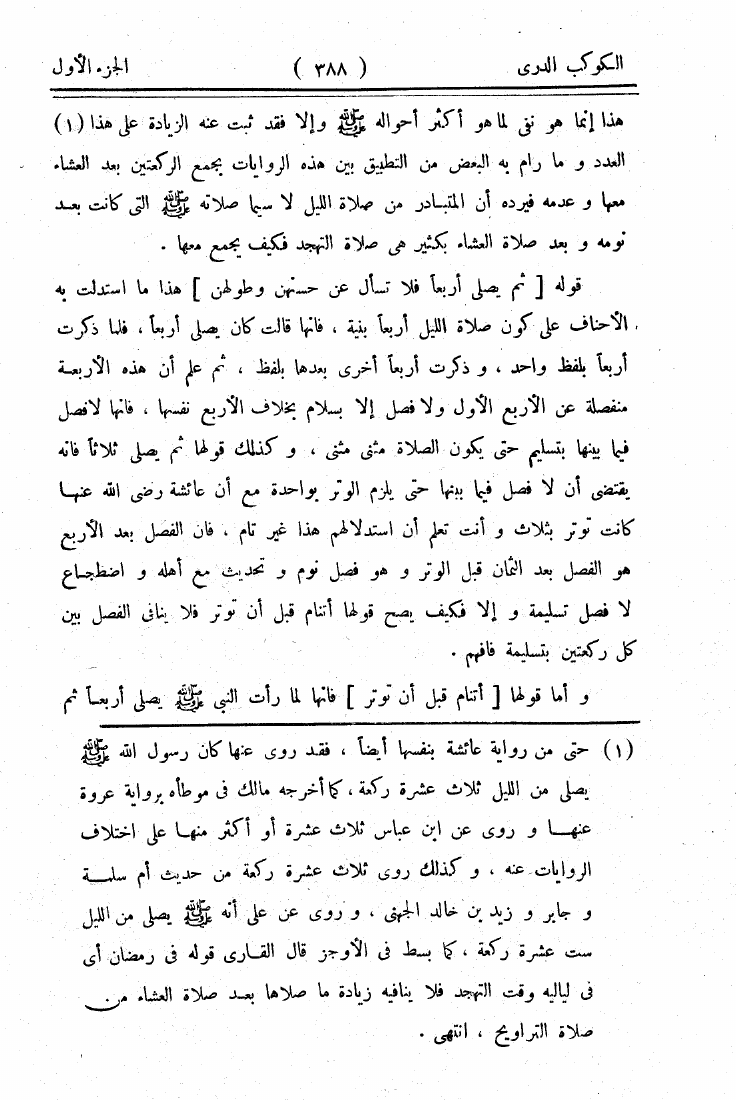 الكوكب الدرى ( ٣٨٨ ) الجزء الأول
هذا إنما هو نفى لما هو أكثر أحواله ﷺ وإلا فقد ثبت عنه الزيادة على هذا (١)
العدد و ما رام به البعض من التطبيق بين هذه الروايات بجمع الركعتين بعد العشاء
معها و عدمه فيرده أن المتبادر من صلاة الليل لا سيما صلاته ﷺ التى كانت بعد
نومه و بعد صلاة العشاء بكثير هى صلاة التهجد فكيف يجمع معها .
قوله [ ثم يصلى أربعاً فلا تسأل عن حسنهن وطولهن ] هذا ما استدلت به
الأحناف على كون صلاة الليل أربعاً بنية ، فانها قالت كان يصلى أربعاً ، فلما ذكرت
أربعاً بلفظ واحد ، و ذكرت أربعاً أخرى بعدها بلفظ ، ثم علم أن هذه الأربعة
منفصلة عن الأربع الأول ولا فصل إلا بسلام بخلاف الأربع نفسها ، فانها لافصل
فيما بينها بتسليم حتى يكون الصلاة مثنى مثنى ، و كذلك قولها ثم يصلى ثلاثاً فانه
يقتضى أن لا فصل فيما بينها حتى يلزم الوتر بواحدة مع أن عائشة رضى الله عنها
كانت توتر بثلاث و أنت تعلم أن استدلالهم هذا غير تام ، فان الفصل بعد الأربع
هو الفصل بعد الثمان قبل الوتر و هو فصل نوم و تحديث مع أهله و اضطجاع
لا فصل تسليمة و إلا فكيف يصح قولها أتنام قبل أن توتر فلا ينافى الفصل بين
كل ركعتين بتسليمة فافهم .
و أما قولها [ أتنام قبل أن توتر ] فانها لما رأت النبى ﷺ يصلى أربعاً ثم
(١) حتى من رواية عائشة بنفسها أيضاً ، فقد روى عنها كان رسول الله ﷺ
يصلى من الليل ثلاث عشرة ركعة ، كما أخرجه مالك فى موطأه برواية عروة
عنها و روى عن ابن عباس ثلاث عشرة أو أكثر منها على اختلاف
الروايات عنه ، و كذلك روى ثلاث عشرة ركعة من حديث أم سلمة
و جابر و زيد بن خالد الجهنى ، و روى عن على أنه ﷺ يصلى من الليل
ست عشرة ركعة ، كما بسط فى الأوجز قال القارى قوله فى رمضان أى
فى لياليه وقت التهجد فلا ينافيه زيادة ما صلاها بعد صلاة العشاء من
صلاة التراويح ، انتهى .